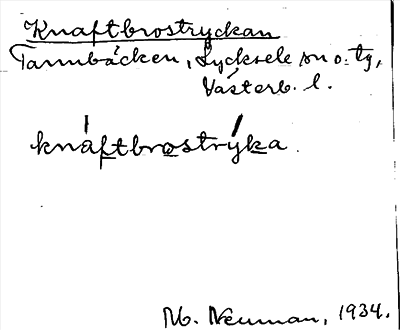 Knaftbrostryckan
Tannbäcken, Lycksele sn o. tg,
Västerb. l.
knaftbrostryka.
M. Neuman, 1934.